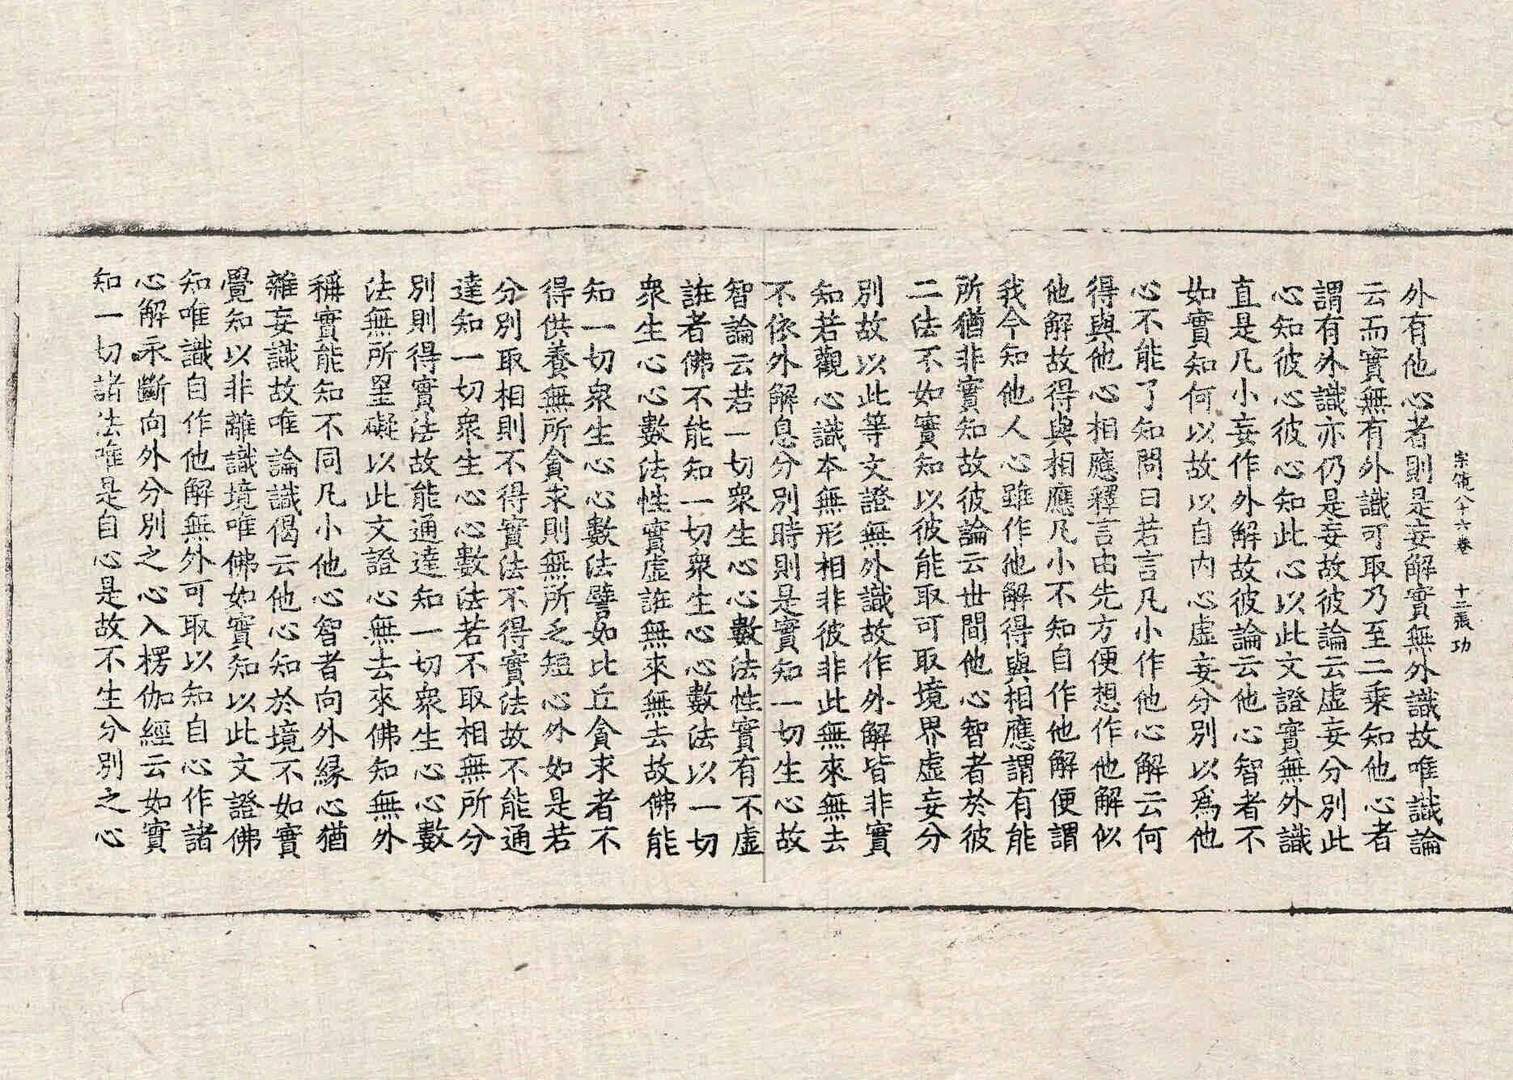 宗鏡八十六卷 十二張 功
外有他心者則是妄解實無外識故唯識論
云而實無有外識可取乃至二乘知他心者
謂有外識亦仍是妄故彼論云虛妄分別此
心知彼心彼心知此心以此文證實無外識
直是凡小妄作外解故彼論云他心智者不
如實知何以故以自內心虛妄分別以爲他
心不能了知問曰若言凡小作他心解云何
得與他心相應釋言由先方便想作他解似
他解故得與相應凡小不知自作他解便謂
我今知他人心雖作他解得與相應謂有能
所猶非實知故彼論云世間他心智者於彼
二法不如實知以彼能取可取境界虛妄分
別故以此等文證無外識故作外解皆非實
知若觀心識本無形相非彼非此無來無去
不依外解息分別時則是實知一切生心故
智論云若一切衆生心心數法性實有不虛
誑者佛不能知一切衆生心心數法以一切
衆生心心數法性實虛誑無來無去故佛能
知一切衆生心心數法譬如比丘貪求者不
得供養無所貪求則無所乏短心外如是若
分別取相則不得實法不得實法故不能通
達知一切衆生心心數法若不取相無所分
別則得實法故能通達知一切衆生心心數
法無所罣礙以此文證心無去來佛知無外
稱實能知不同凡小他心智者向外緣心猶
雜妄識故唯論識偈云他心知於境不如實
覺知以非離識境唯佛如實知以此文證佛
知唯識自作他解無外可取以知自心作諸
心解永斷向外分別之心入楞伽經云如實
知一切諸法唯是自心是故不生分別之心